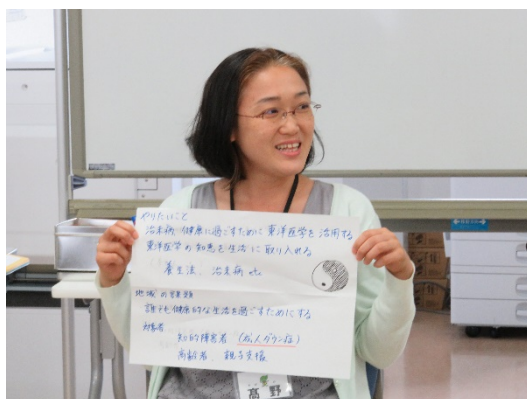 やりたいこと
治未病 健康に過ごすために東洋医学を活用する
東洋医学の知恵を生活に取り入れる
養生法、治未病 etc
地域の課題
誰でも健康的な生活を過ごすためにする
対象者
知的障害者 (成人ダウン症)
高齢者、親子支援
高野